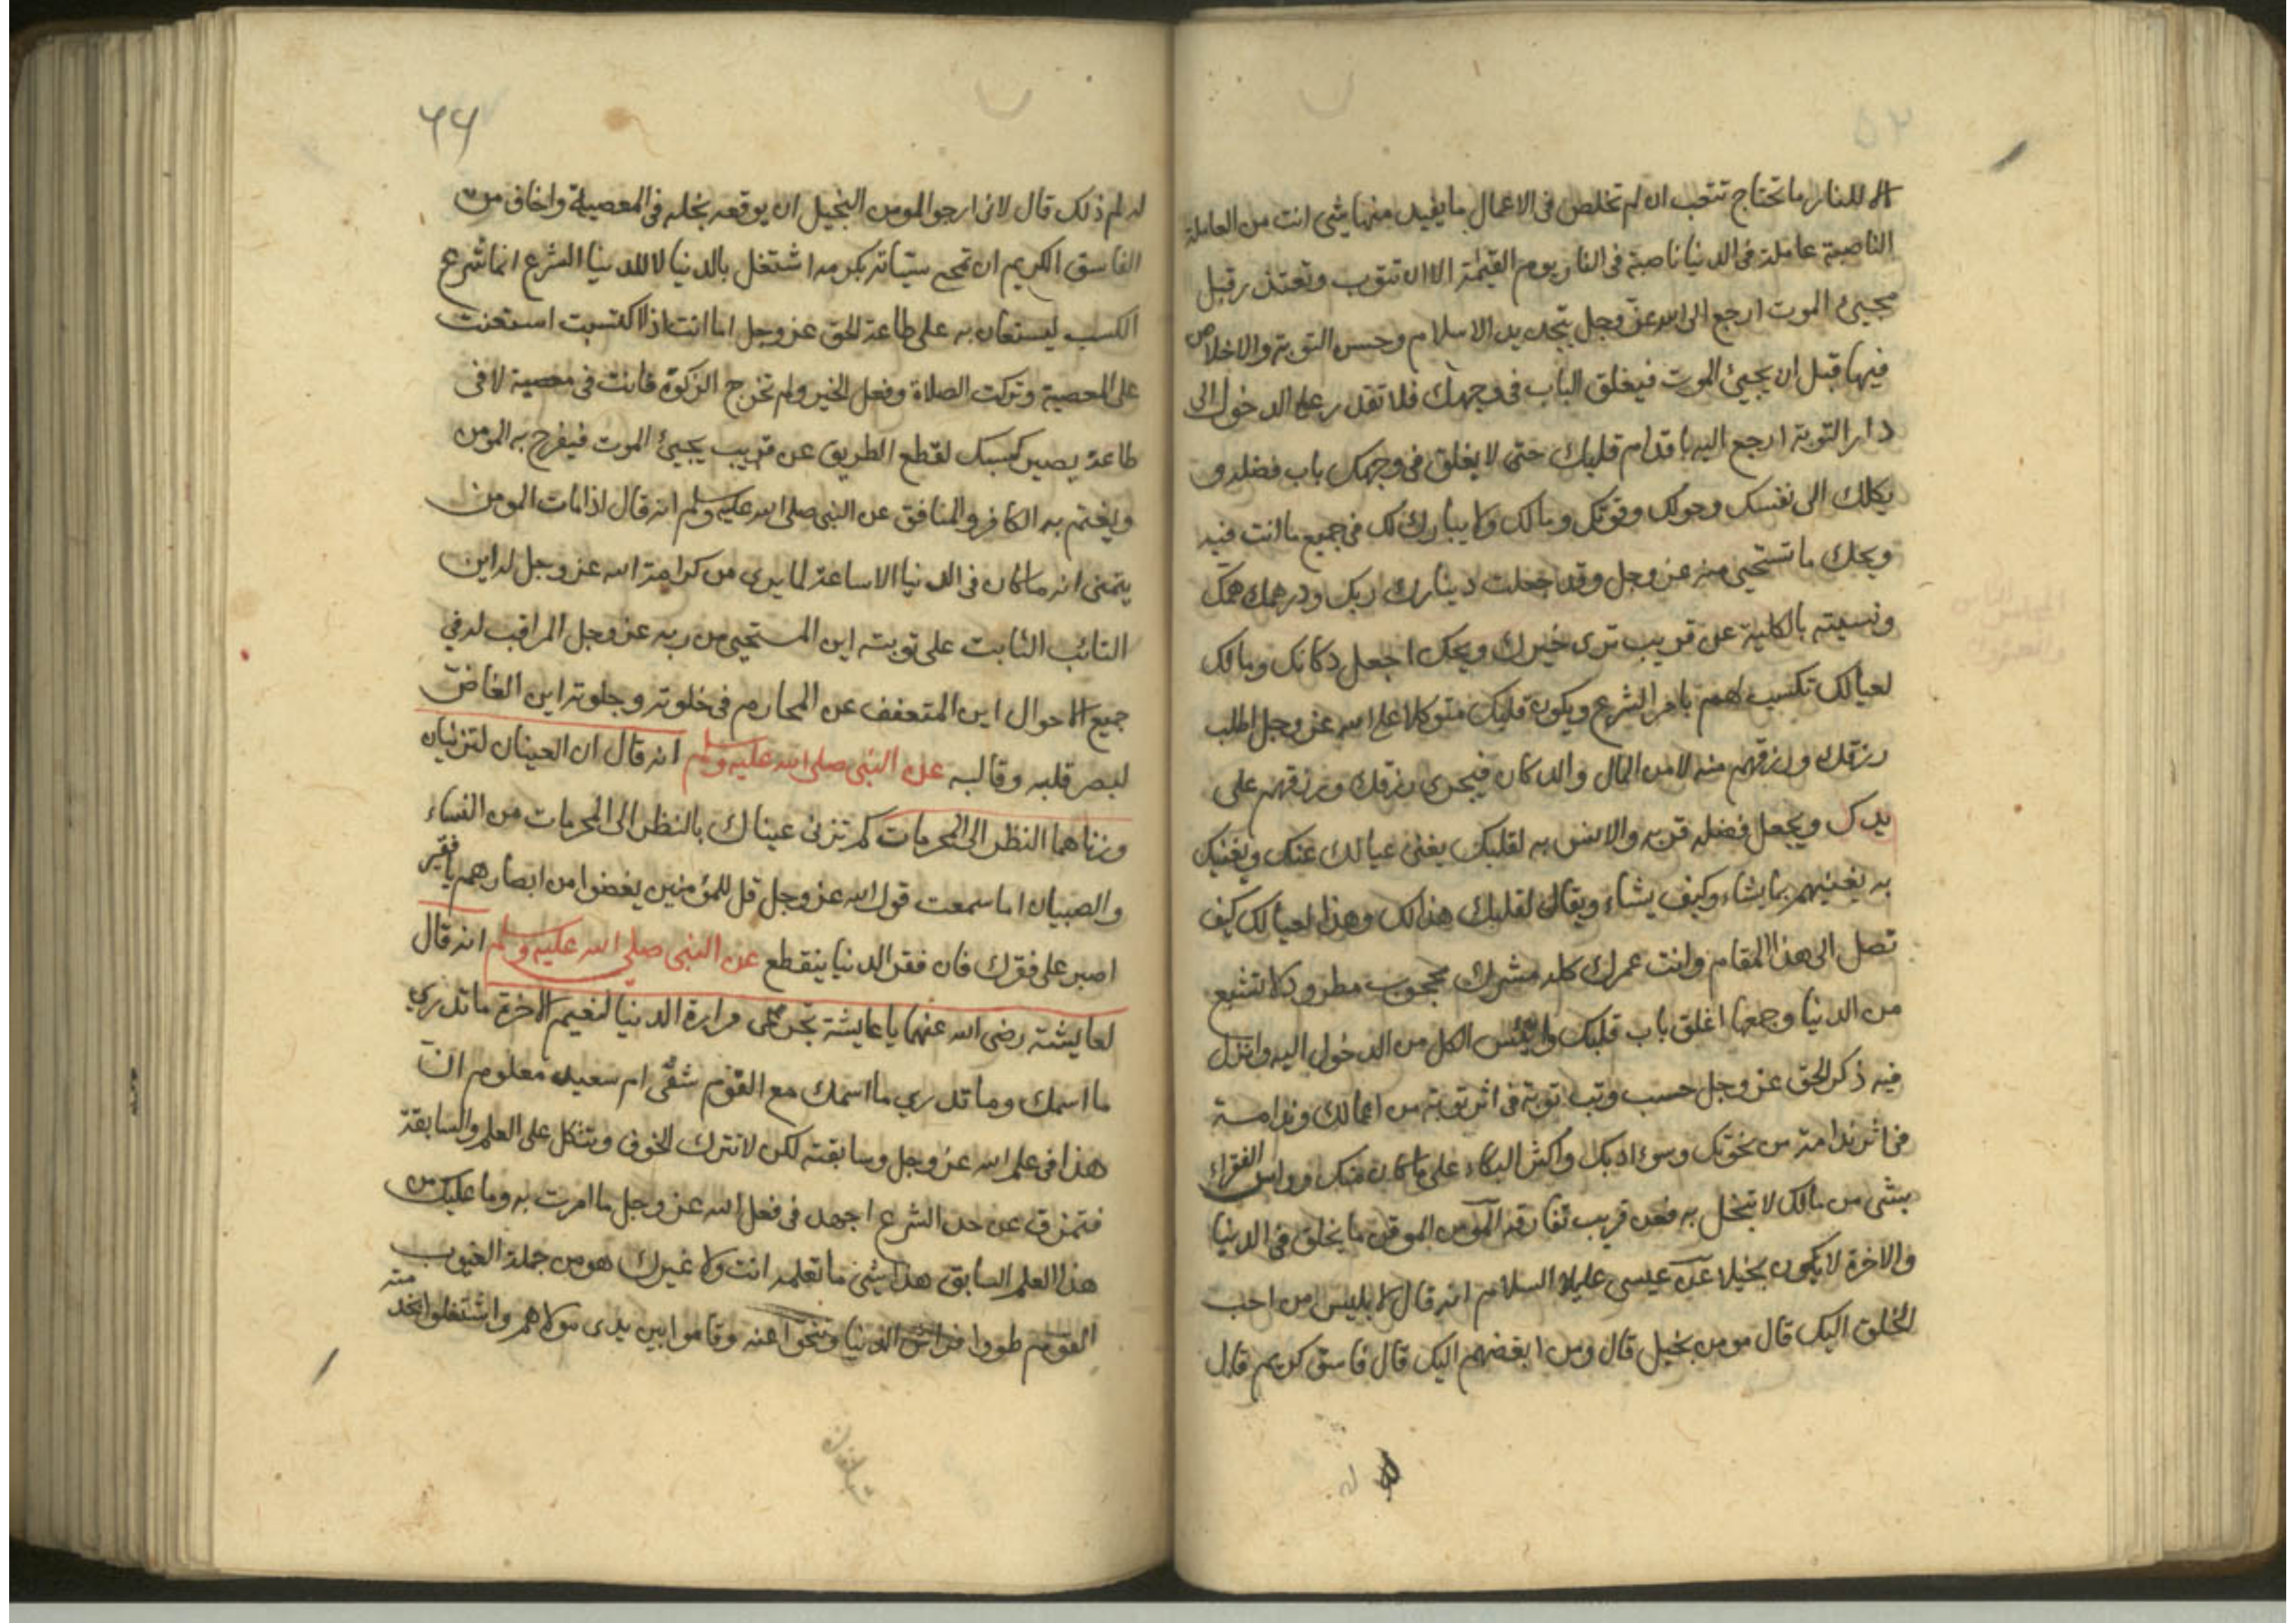 الا للنار ما تحتاج تتعب ان لم تخلص فى الاعمال ما يفيد منها شئ انت من العاملة
الناصبة عاملة فى الدنيا ناصبة فى النار يوم القيمة الا ان تتوب وتعتذر قبل
مجيئ الموت ارجع الى الله عز وجل بتجديد الاسلام وحسن التوبة والاخلاص
فيها قبل ان يجيئ الموت فيغلق الباب فى وجهك فلا تقدر على الدخول الى
دار التوبة ارجع اليه باقدام قلبك حتى لا يغلق فى وجهك باب فضله و
يكلك الى نفسك وحولك وقوتك ومالك ولا يبارك لك فى جميع ما انت فيه
ويحك ما تستحيى منه عز وجل وقد جعلت دينارك ربك ودرهمك همك
ونسيته بالكلية عن قريب ترى خبرك ويحك اجعل دكانك ومالك
لعيالك تكسب لهم بامر الشرع ويكون قلبك متوكلا على الله عز وجل اطلب
رزقك ورزقهم منه لا من المال والدكان فيجرى رزقك ورزقهم على
يدك ويجعل فضله قربه والانس به لقلبك يغنى عيالك عنك ويغنيك
به يغنيهم بما يشاء وكيف يشاء ويقال لقلبك هذا لك وهذا لعيالك كيف
تصل الى هذا المقام وانت عمرك كله مشرك محجوب مطرود لا تشبع
من الدنيا وجمعها اغلق باب قلبك وايئس الكل من الدخول اليه وانزل
فيه ذكر الحق عز وجل حسب وتب توبة فى اثر توبة من اعمالك وندامة
فى اثر ندامة من نخوتك وسوء ادبك واكثر البكاء على ما كان منك وواس الفقراء
بشئ من مالك لا تبخل به فعن قريب تفارقه المومن الموقن ما يخلق فى الدنيا
والاخرة لا يكون بخيلا عن عيسى عليه السلام انه قال لابليس من احب
الخلق اليك قال مومن بخيل قال ومن ابغضهم اليك قال فاسق كريم قال
٦٦
له لم ذلك قال لانى ارجو المومن البخيل ان يوقعه بخله فى المعصية واخاف من
الفاسق الكريم ان تمحى سيئاته بكرمه اشتغل بالدنيا لا للدنيا الشرع انما شرع
الكسب ليستعان به على طاعة الحق عز وجل اما انت اذا اكتسبت استعنت
على المعصية وتركت الصلاة وفعل الخير ولم تخرج الزكوة فانت فى معصية لا فى
طاعة يصير كسبك لقطع الطريق عن قريب يجيئ الموت فيفرح به المومن
ويغتم به الكافر والمنافق عن النبى صلى الله عليه وسلم انه قال اذا مات المومن
يتمنى انه ما كان فى الدنيا الا ساعة لما يرى من كرامة الله عز وجل له اين
التائب الثابت على توبته اين المستحيى من ربه عز وجل المراقب له فى
جميع الاحوال اين المتعفف عن المحارم فى خلوته وجلوته اين الغاض
لبصر قلبه وقالبه عن النبى صلى الله عليه وسلم انه قال ان العينان لتزنيان
وزناهما النظر الى المحرمات كم تزنى عيناك بالنظر الى المحرمات من النساء
والصبيان اما سمعت قول الله عز وجل قل للمؤمنين يغضوا من ابصارهم يا فقير
اصبر على فقرك فان فقر الدنيا ينقطع عن النبى صلى الله عليه وسلم انه قال
لعايشة رضى الله عنها يا عايشة تجرعى مرارة الدنيا لنعيم الاخرة ما تدري
ما اسمك وما تدري ما اسمك مع القوم شقى ام سعيد معلوم ان
هذا فى علم الله عز وجل وسابقته لكن لا تترك الخوف وتتكل على العلم والسابقة
فتمرق عن حد الشرع اجهد فى فعل الله عز وجل ما امرت به وما عليك من
هذا العلم السابق هذا شئ ما تعلمه انت ولا غيرك هو من جملة الغيوب
القوم طووا فراش الدنيا وتنحوا عنه وقاموا بين يدى مولاهم واشتغلوا بخدمته